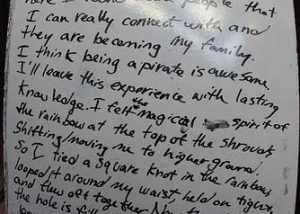 people that
I can really connect with and
they are becoming my family.
I think being a pirate is awesome
I'll leave this experience with lasting
Knowledge. I felt the magical spirit of
the rainbow at the top of the shrouds
Shifting/moving me to higher ground.
So I tied a square knot in the rainbow,
looped it around my waist, held on tight,
and flew off together.
the hole is